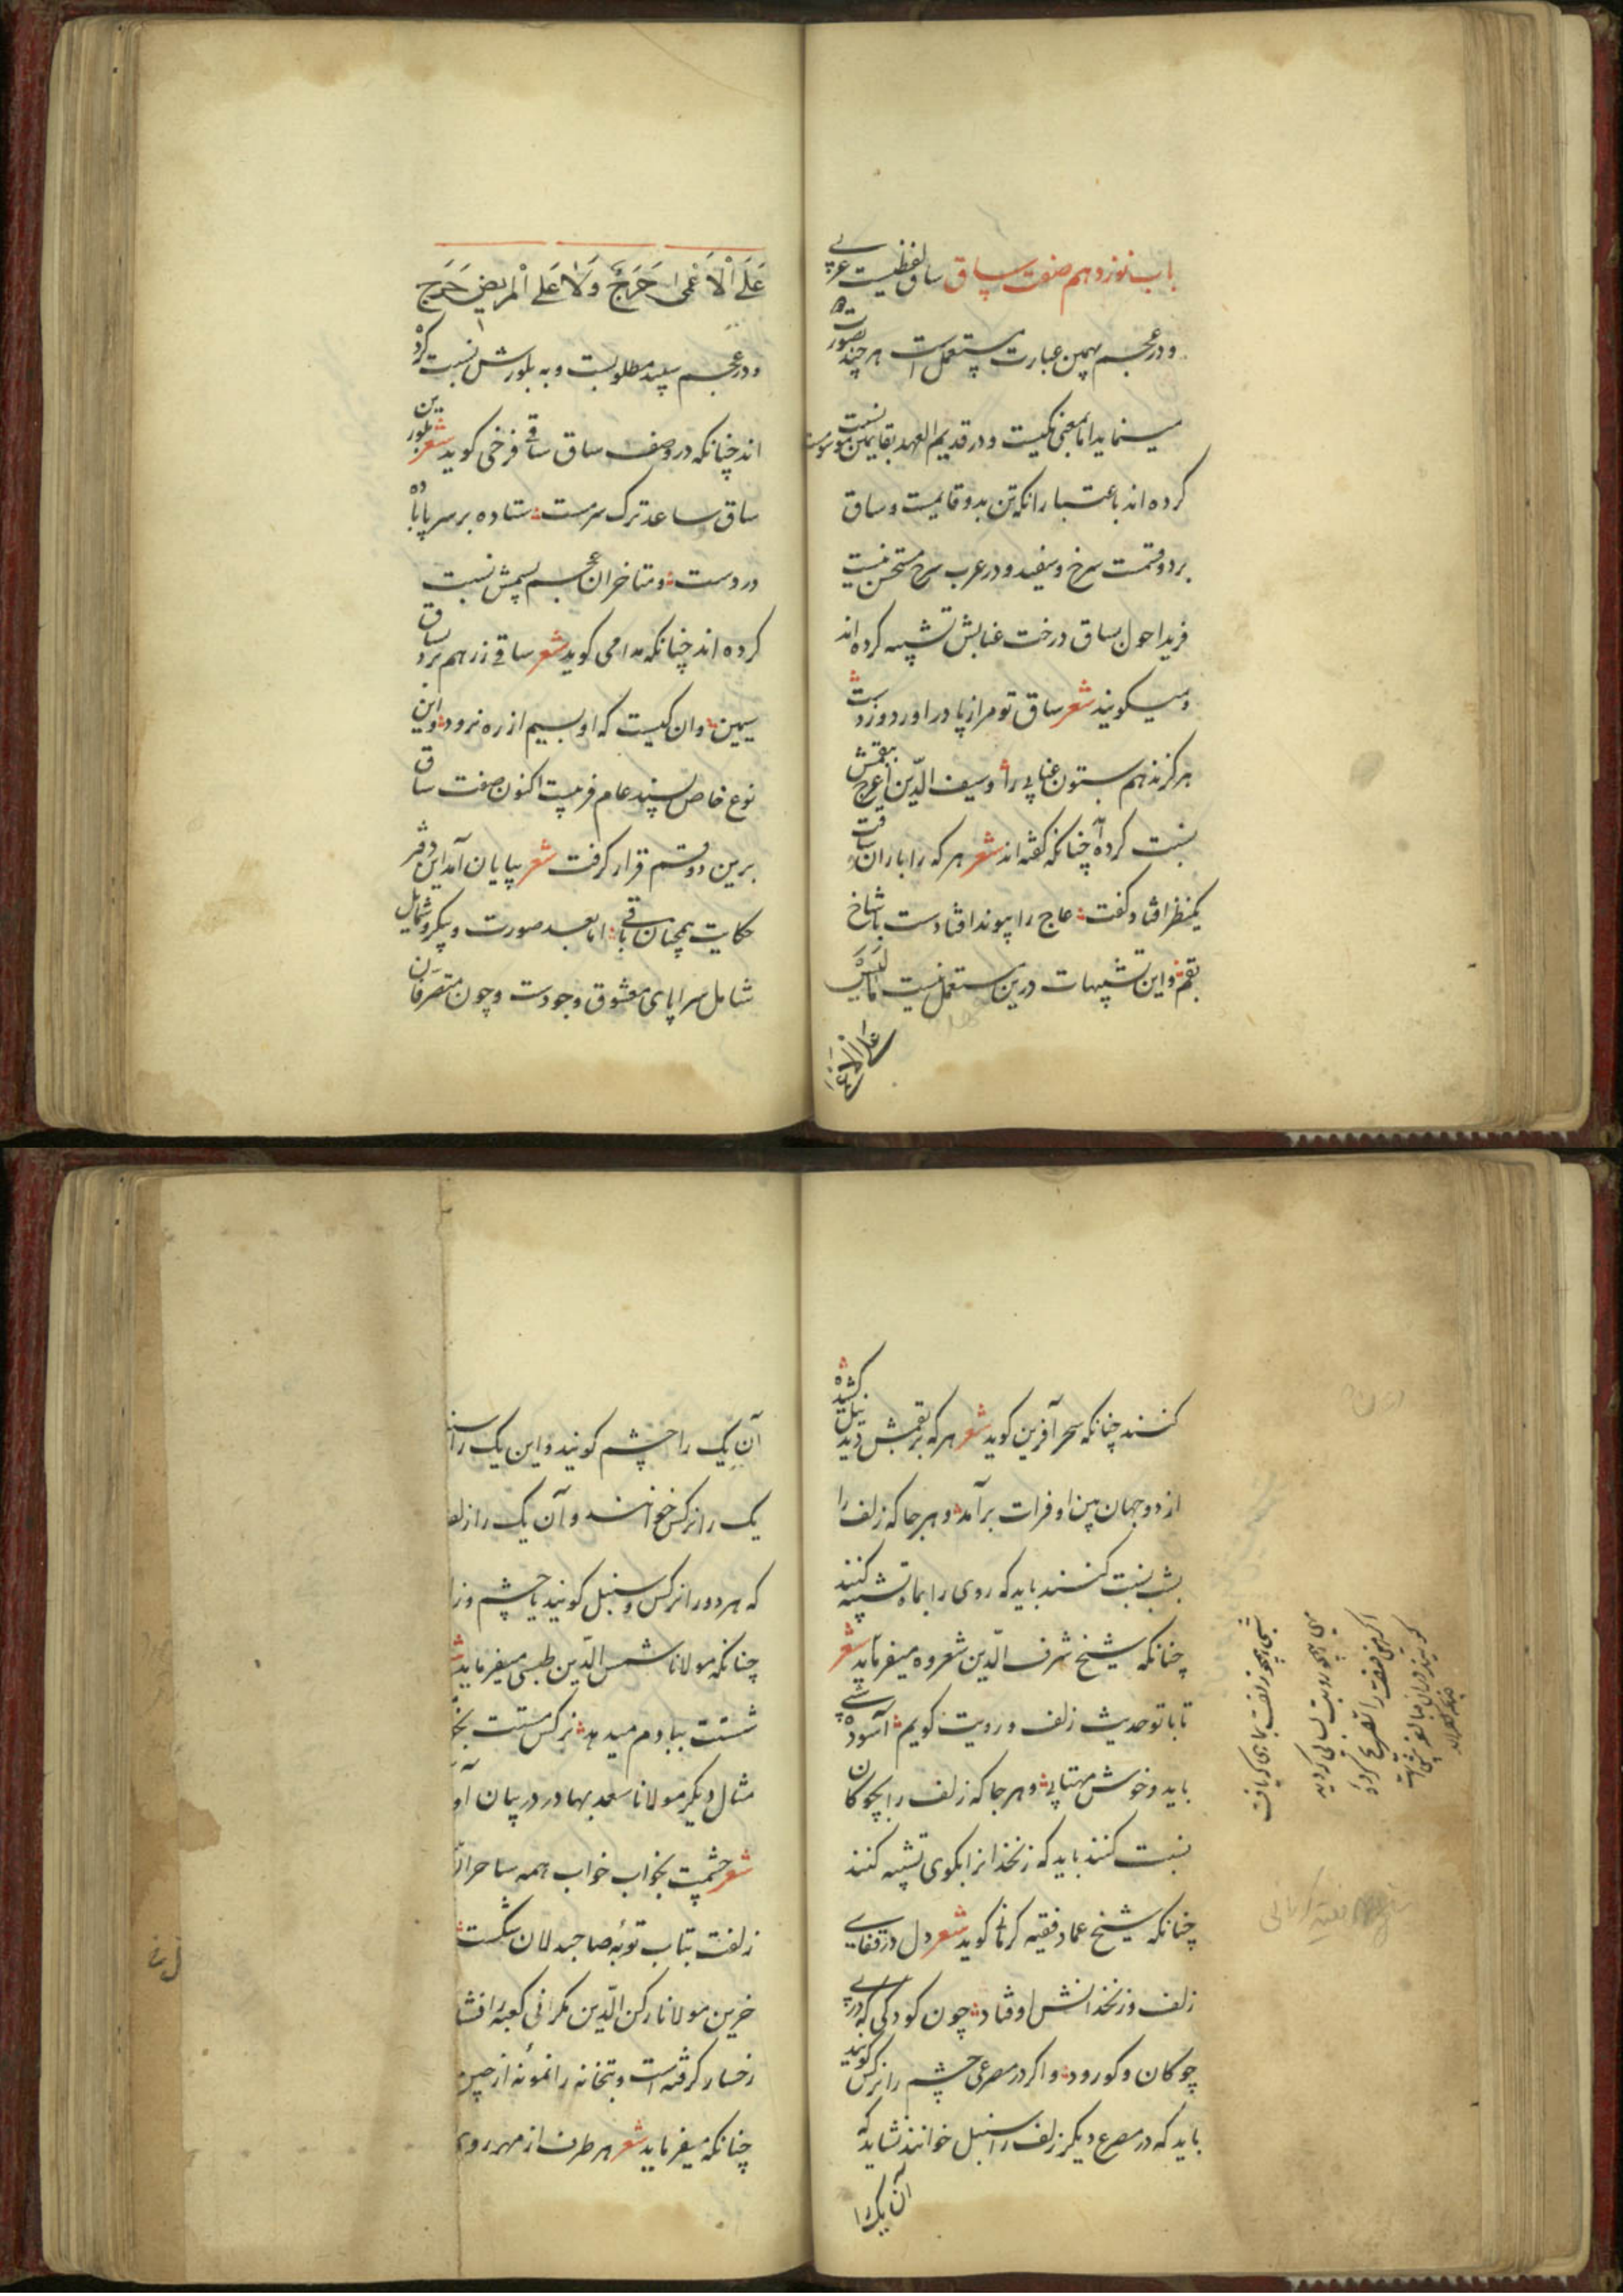 باب نوزدهم صفت ساق ساق لفظیست عربی
و در عجم بهمین عبارت مستعمل است هر چند بصورت
مینماید اما بمعنی یکیست و در قدیم العهد بقایمتین نسبت
کرده اند باعتبار انکه تن بدو قایمست و ساق
بر دو قسمت سرخ و سفید و در عرب سرخ مستحسن نیست
فرید احول بساق درخت عنابش تشبیه کرده اند
و میکویند شعر ساق تو مرا ز پا دراورد و زدست
هرکز ندهم ستون عنابی را و سیف الدین اعرج ببقمش
نسبت کرده چنانکه کفته اند شعر هر که را با ران و ساقت
یکنظر افتاد کفت عاج را پیوند افتادست با شاخ
بقم و این تشبیهات درین مستعمل نیست کما لیس
علی الاعمی
عَلَی الْاَعْمی حَرَجٌ وَلَا عَلَی الْمَریضِ حَرَجٌ
و در عجم سپید مطلوبست و به بلورش نسبت کرده
اند چنانکه در وصف ساق ساقی فرخی کوید شعر بلورین
ساق ساعد ترک سرمست ستاده بر سر پا باده
در دست و متاخران عجم بسیمش نسبت
کرده اند چنانکه مدامی کوید شعر ساقی زرهم برد بساق
سیمین وان کیست که او بسیم از ره نرود و این
نوع خاص پسند عام فریبست اکنون صفت ساق
برین دو قسم قرار کرفت شعر بپایان آمد این دفتر
حکایت همچنان باقی اما بعد صورت و پیکر و شمایل
شامل سراپای معشوق وجودست و چون متصرفان
کنند چنانکه سحر آفرین کوید شعر هر که بر بقمش دید نیل کشیده
از دو جهان بین او فرات برآمد و هر جا که زلف را
بشب نسبت کنند باید که روی را بماه تشبیه کنند
چنانکه شیخ شرف الدین شعروه میفرماید شعر
تا با تو حدیث زلف و رویت کویم آسوده شبی
باید و خوش مهتابی و هر جا که زلف را بچوکان
نسبت کنند باید که زنخدانرا بکوی تشبیه کنند
چنانکه شیخ عماد فقیه کرمانی کوید شعر دل در قفای
زلف و زنخدانش اوفتاد چون کودکی که در پی
چوکان و کو رود و اکر در مصرعی چشم را نرکس کویند
باید که در مصرع دیکر زلف را سنبل خوانند نشاید که
آن یک را
آن یک را چشم کویند و این یک را سنبل
یک را نرکس خوانند و آن یک را زلف
که هر دو را نرکس و سنبل کویند یا چشم و زلف
چنانکه مولانا شمس الدین طبسی میفرماید
شستت ببادم میدهد نرکس مستت
مثال دیکر مولانا سعد بهادر در بیان
شعر چشمت بخواب خواب همه ساحران
زلفت بتاب توبهٔ صاحبدلان شکست
خرین مولانا رکن الدین مکرانی کعبه را
رخسار کرفته است و بتخانه را نمونه از
چنانکه میفرماید شعر هر طرف از مهر روی